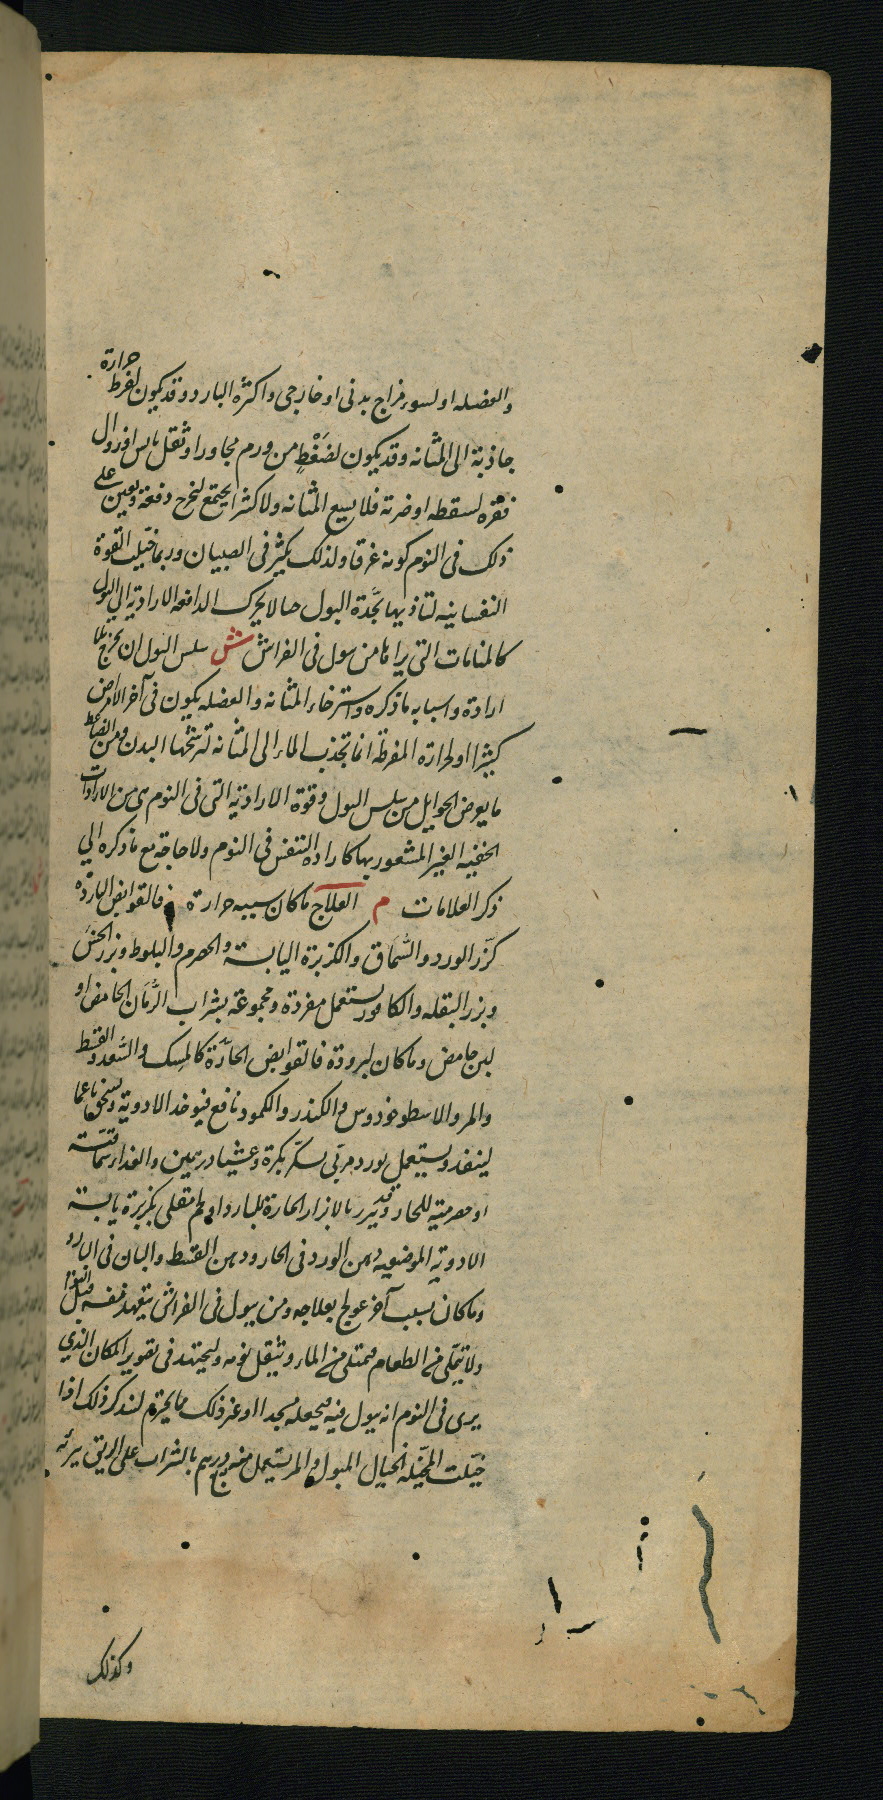 والعضله او لسوء مزاج بدنى او خارجى واكثره البارد وقد يكون لفرط حرارة
جاذبة الى المثانه وقد يكون لضغط من ورم مجاور او ثقل يابس او زوال
فقره لسقطه او ضربة فلا يسع المثانه ولا كثيرا يجتمع ليخرج دفعة ويعين على
ذلك فى النوم كونه غرقا ولذلك يكثر فى الصبيان وربما خيلت القوة
النفسانيه لتاذيها بحدة البول حالا يحرك الدافعه الارادية الى البول
كالمنامات التى يراها من يبول فى الفراش ش سلس البول ان يخرج بلا
ارادة واسبابه ما ذكره واسترخاء المثانه والعضله يكون فى آخر الامراض
كثيرا والحرارة المفرطة انما تجذب الماء الى المثانه ثم تسخنها البدن ومن الضاغط
ما يعرض للحوامل من سلس البول وقوة الارادية التى فى النوم هى من الارادات
الخفيه الغير المشعور بها كارادة التنفس فى النوم ولا حاجة مع ما ذكره الى
ذكر العلامات م العلاج ما كان سببه حرارة فالقوابض الباردة
كزر الورد والسماق والكزبرة اليابسة والحصرم والبلوط وبزر الخس
وبزر البقله والكافور يستعمل مفردة ومجموعة بشراب الرمان الحامض او
لبن حامض وما كان لبرودة فالقوابض الحادة كالمسك والسعد والقسط
والمر والاسطوخودوس والكندر والكمون نافع فيوخذ الادوية ويسحق ناعما
لينفذ ويستعمل بورد مربى بسكر بكرة وعشيا درهمين والغذاء سماقية
او حصرمية للحار وقد يبزر بالابزار الحارة للبارد او لحم مقلى بكزبرة يابسة
الادوية الموضعيه دهن الورد فى الحار ودهن القسط والبان فى البارد
وما كان بسبب آخر عولج بعلاجه ومن يبول فى الفراش يتعهد نفسه قبل النوم
ولا يتملى من الطعام فيمتلى من الماء ويثقل نومه وليجتهد فى تقوير المكان الذي
يرى فى النوم انه يبول فيه فيجعله مسجدا او غير ذلك مما يحترم ليتذكر ذلك اذا
خيلت المخيله الخيال المبول والمر يستعمل منه درهم بالشراب على الريق يبرئه
وكذلك